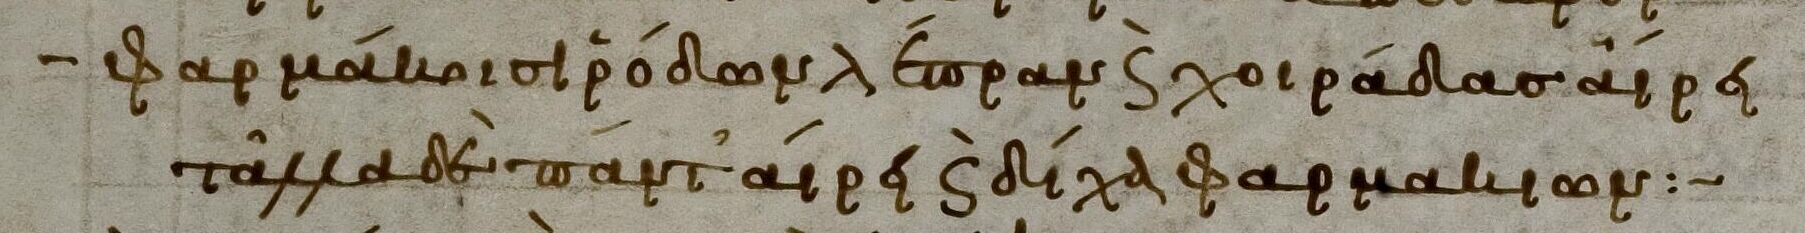 – φαρμάκοισι ῥόδων λέπραν ϗ̀ χοιράδας αἴρει
τἄλλα δὲ πάντ' αἴρει ϗ̀ δίχα φαρμακων:–